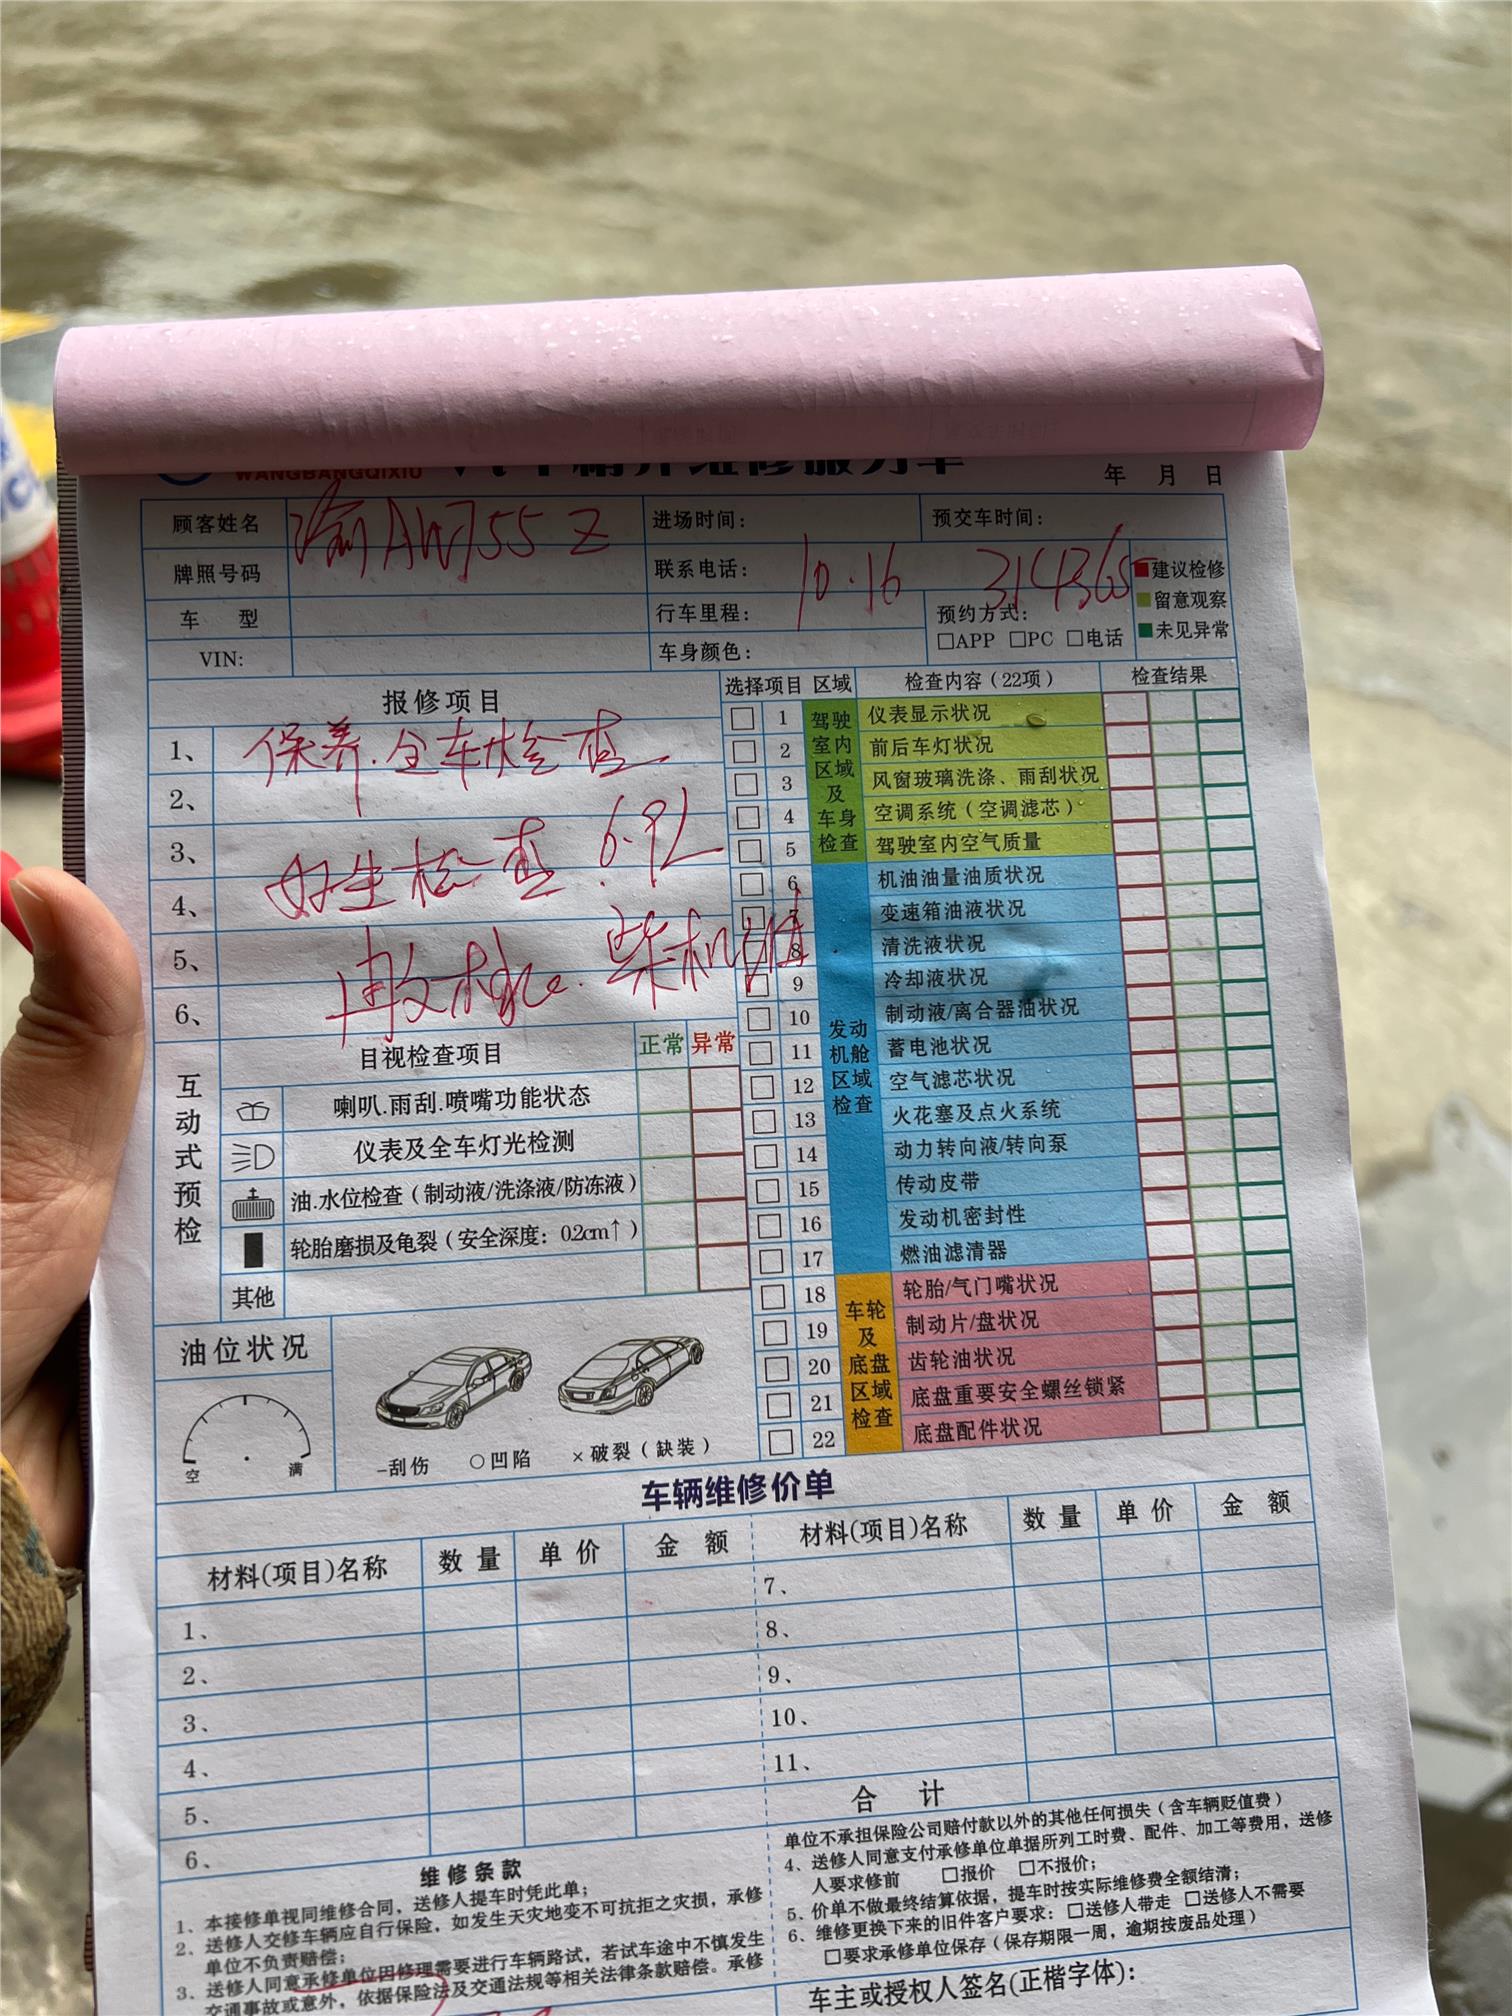 WANGBANGQIXIU
年 月 日
顾客姓名 渝AW755Z 进场时间： 预交车时间：
牌照号码 联系电话： 10.16 314365 ■建议检修
车 型 行车里程： 预约方式： ■留意观察
□APP □PC □电话 ■未见异常
VIN: 车身颜色：
报修项目
1、 保养.全车检查
2、
3、 好生检查 6.9L
4、
5、 柴机油
6、
选择项目 区域 检查内容（22项） 检查结果
驾驶室内区域及车身检查
□ 1 仪表显示状况
□ 2 前后车灯状况
□ 3 风窗玻璃洗涤、雨刮状况
□ 4 空调系统（空调滤芯）
□ 5 驾驶室内空气质量
发动机舱区域检查
□ 6 机油油量油质状况
□ 7 变速箱油液状况
□ 8 清洗液状况
□ 9 冷却液状况
□ 10 制动液/离合器油状况
□ 11 蓄电池状况
□ 12 空气滤芯状况
□ 13 火花塞及点火系统
□ 14 动力转向液/转向泵
□ 15 传动皮带
□ 16 发动机密封性
□ 17 燃油滤清器
车轮及底盘区域检查
□ 18 轮胎/气门嘴状况
□ 19 制动片/盘状况
□ 20 齿轮油状况
□ 21 底盘重要安全螺丝锁紧
□ 22 底盘配件状况
互动式预检
目视检查项目 正常 异常
喇叭.雨刮.喷嘴功能状态
仪表及全车灯光检测
油.水位检查（制动液/洗涤液/防冻液）
轮胎磨损及龟裂（安全深度：0.2cm↑）
其他
油位状况
空 满
–刮伤 ○凹陷 ×破裂（缺装）
车辆维修价单
材料(项目)名称 数量 单价 金额 材料(项目)名称 数量 单价 金额
1、 7、
2、 8、
3、 9、
4、 10、
5、 11、
6、 合 计
维修条款
1、本接修单视同维修合同，送修人提车时凭此单；
2、送修人交修车辆应自行保险，如发生天灾地变不可抗拒之灾损，承修
单位不负责赔偿；
3、送修人同意承修单位因修理需要进行车辆路试，若试车途中不慎发生
交通事故或意外，依据保险法及交通法规等相关法律条款赔偿。承修
单位不承担保险公司赔付款以外的其他任何损失（含车辆贬值费）
4、送修人同意支付承修单位单据所列工时费、配件、加工等费用，送修
人要求修前 □报价 □不报价；
5、价单不做最终结算依据，提车时按实际维修费全额结清；
6、维修更换下来的旧件客户要求：□送修人带走 □送修人不需要
□要求承修单位保存（保存期限一周，逾期按废品处理）
车主或授权人签名(正楷字体)：